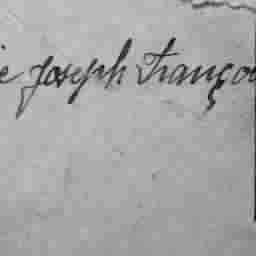 e Joseph Franço